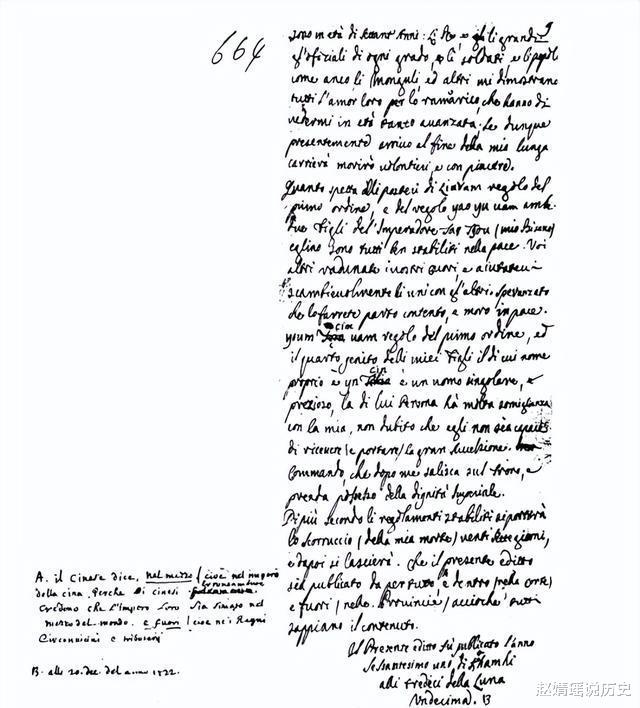 664
9
sono in età di settant'Anni: Li Re, e gli grandi
gl'officiali di ogni grado, e li soldati, e li popoli
come anco li Monguli, ed altri mi dimostrano
tutti l'amor loro per lo ramarico, che hanno di
vedermi in età tanto avanzata. Se dunque
presentemente arrivo al fine della mia lunga
carriera morirò volontieri, e con piacere.
Quanto spetta alli posteri di Liavam regolo del
primo ordine, e del regolo yao yu vam
due figli del'Imperadore
eglino sono tutti ben stabiliti nella pace. Voi
altri radunate i vostri cuori, e aiutatevi
scambievolmente li uni con gl'altri. Speranzato
che lo farrete parto contento, e moro in pace.
youm cin vam regolo del primo ordine, ed
il quarto genito delli miei figli il di cui nome
proprio è yn cin è un uomo singolare, e
prezioso, la di lui Persona hà molta somiglianza
con la mia, non dubito che egli non sia capace
di ricevere (e portare) la gran successione.
Commando, che dopo me salisca sul trono, e
prenda possesso della dignità Imperiale.
Di più secondo li regolamenti stabiliti si porterà
lo scorruccio (della mia morte) venti sette giorni,
e dapoi si lascierà. Che il presente editto
sia publicato da per tutto A è dentro (nella corte)
e fuori (nelle Provincie) accioche tutti
sappiano il contenuto.
Il Presente editto fù publicato l'anno
Sessantesimo uno, di Khamhi
alli tredeci della Luna
Undecima. B
A. il Cinese dice, nel mezzo (cioe nel numero
della cina. Perche li cinesi
credono che l'Impero loro sia situato nel
mezzo del mondo. e fuori (cioe nei Regni
Circonvicini e tributarij
B. alli 20. dec. del anno 1722.
赵婧瑶说历史